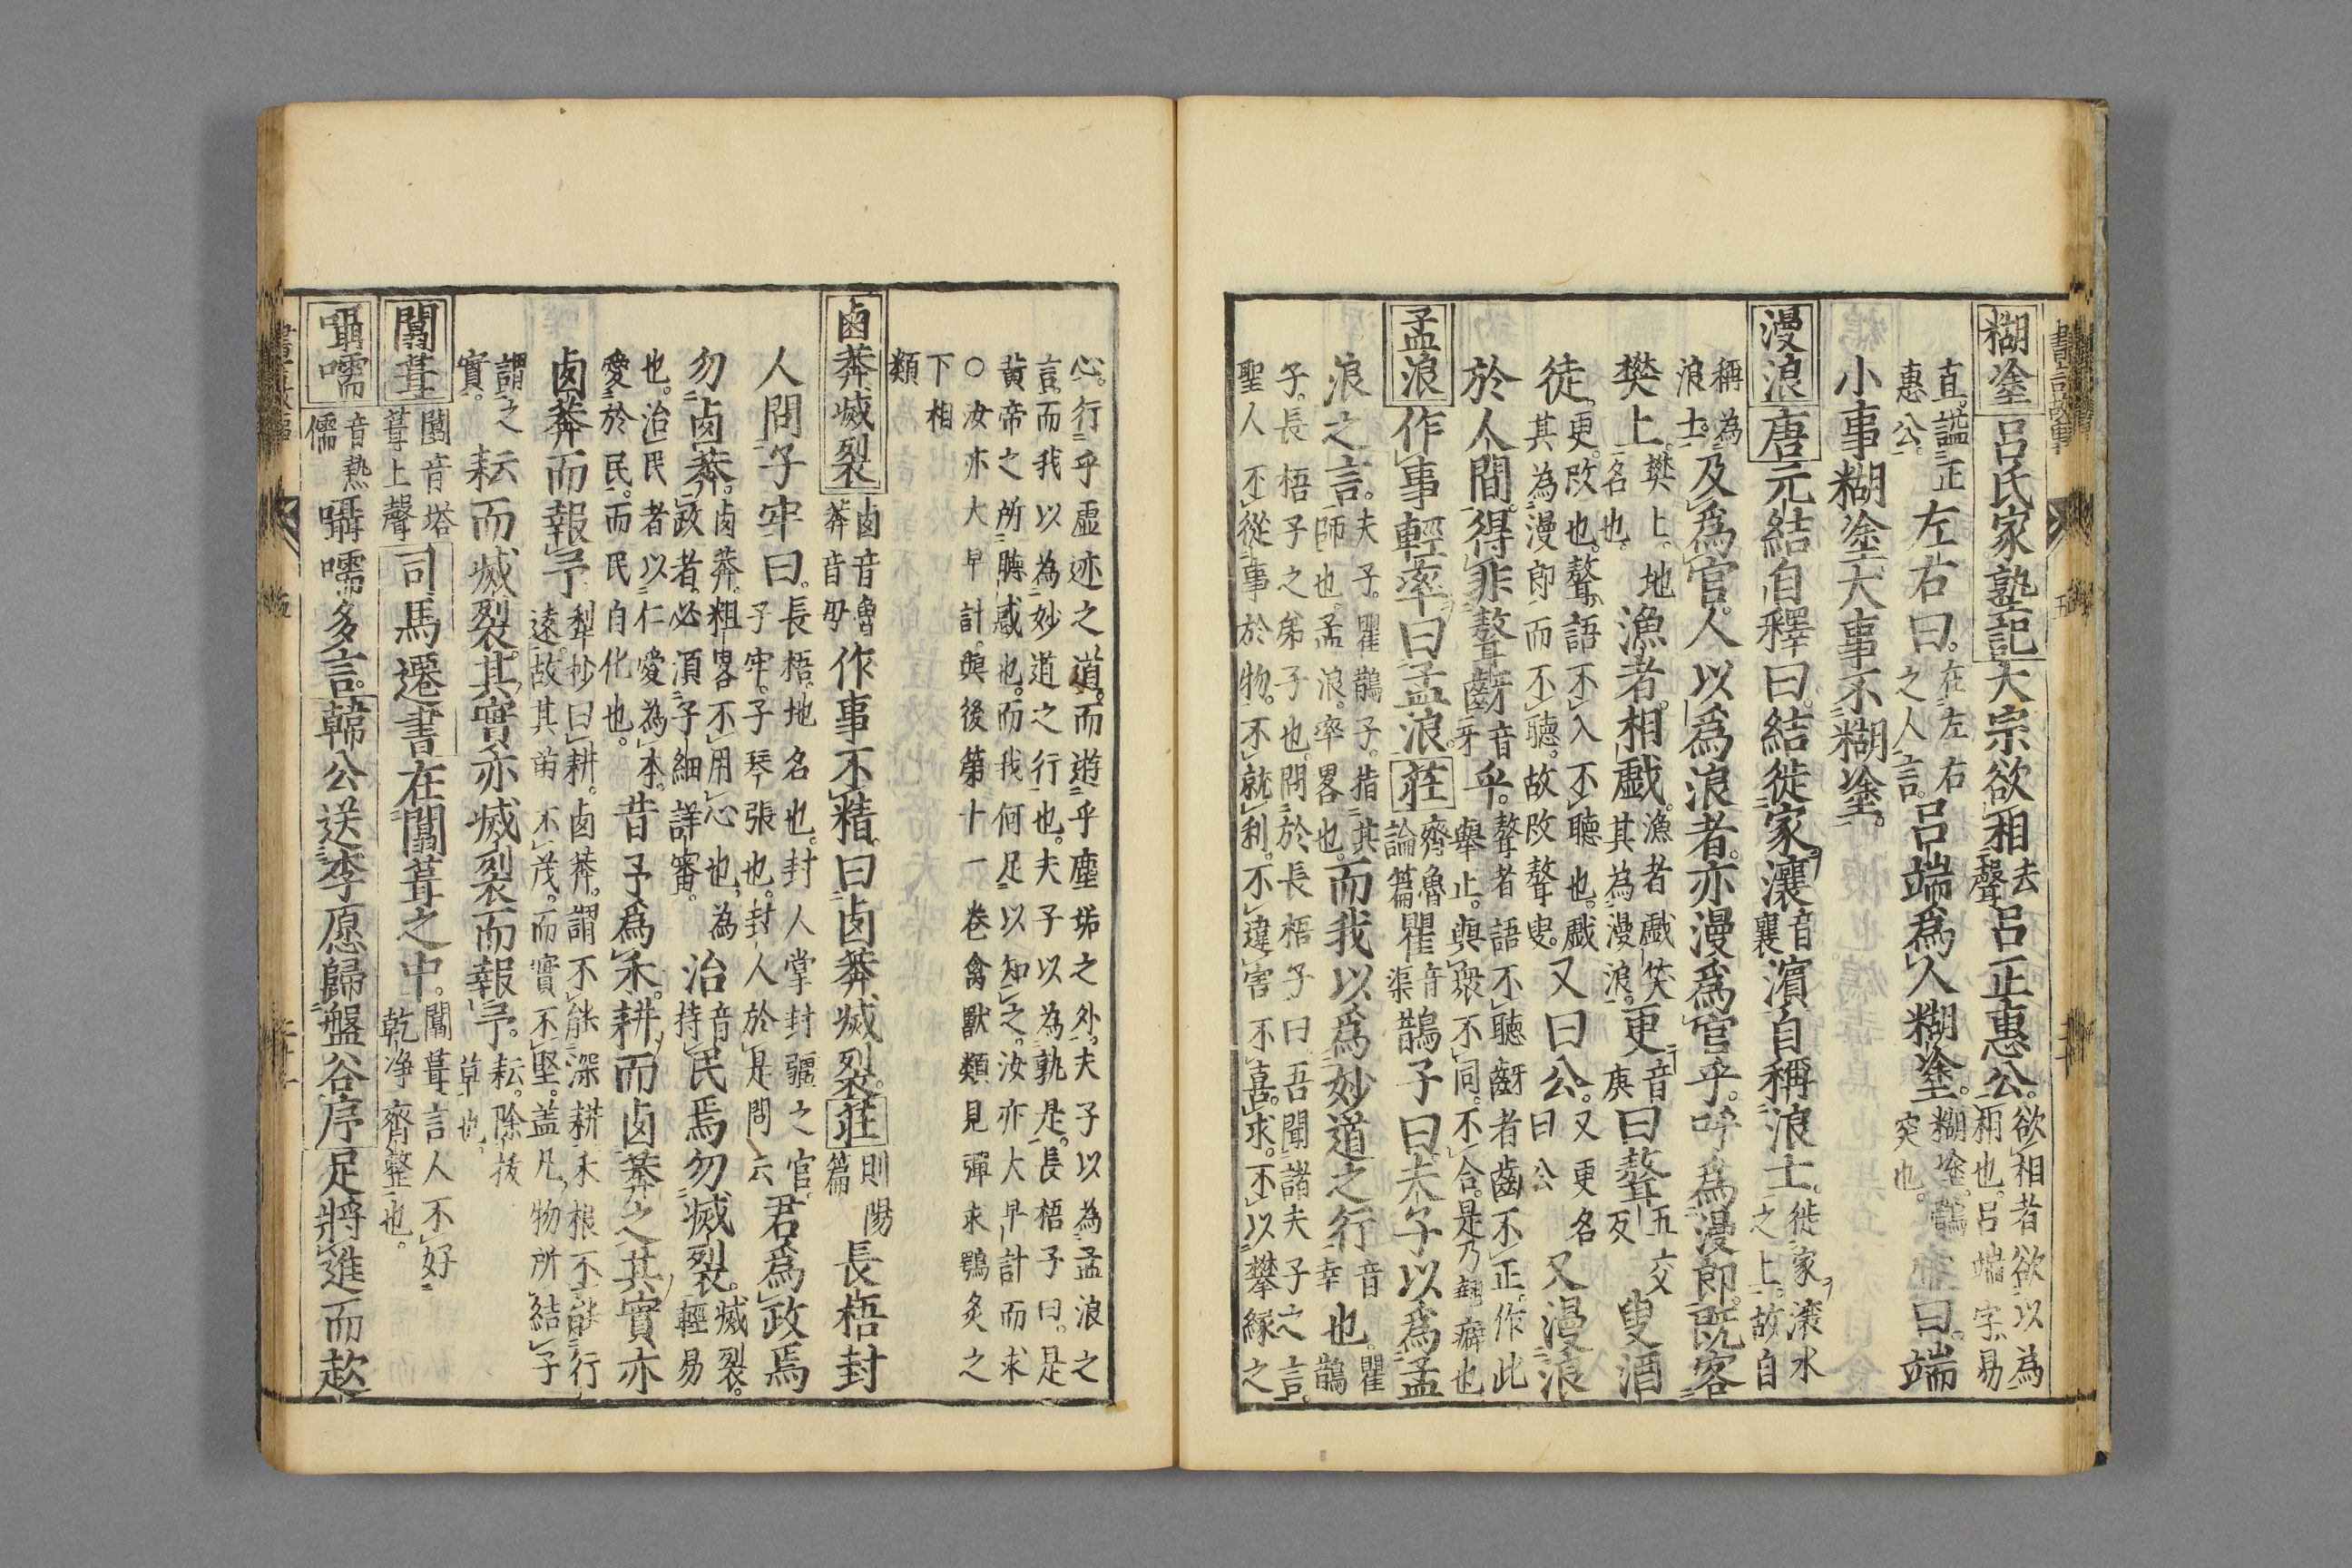 糊塗 呂氏家塾記大宗欲相去聲呂正惠公欲相者欲以為相也呂端字易
直諡正惠公左右曰在左右之人言呂端為人糊塗糊塗鶻突也曰端
小事糊塗大事不糊塗
漫浪 唐元結自釋曰結徙家瀼音襄濱自稱浪士徙家瀼水之上故自
稱為浪士及為官人以為浪者亦漫為官乎呼為漫郎既客
樊上樊上地名也漁者相戲漁者戲笑其為漫浪更音庚曰聱五交反叟酒
徒更改也聱語不入不聽也戲其為漫郎而不聽故改聱叟又曰公又更名曰公又漫浪
於人間得非聱齖音牙乎聱者語不聽齖者齒不正作此舉止與衆不同不合是乃癖也
孟浪 作事輕率曰孟浪莊齊魯論篇瞿音渠鵲子曰夫子以為孟
浪之言夫子瞿鵲子指其師也孟浪率畧也而我以為妙道之行音幸也瞿鵲
子長梧子之弟子也問於長梧子曰吾聞諸夫子之言
聖人不從事於物不就利不違害不喜求不以攀緣之
心行乎虛迹之道而遊乎塵垢之外夫子以為孟浪之
言而我以為妙道之行也夫子以為孰是長梧子曰是
黃帝之所聽惑也而我何足以知之汝亦大早計而求
○汝亦大早計與後第十一卷禽獸類見彈求鶚炙之
下相
類
鹵莽滅裂 鹵音魯莽音母作事不精曰鹵莽滅裂莊則陽篇長梧封
人問子牢曰長梧地名也封人掌封疆之官子牢子琴張也封人於是問云君為政焉
勿鹵莽鹵莽粗畧不用心也為政者必須子細詳審治音持民焉勿滅裂滅裂輕易
也治民者以仁愛為本愛於民而民自化也昔予為禾耕而鹵莽之其實亦
鹵莽而報予犁抄曰耕鹵莽謂不能深耕禾根不能行遠故其苗不茂而實不堅蓋凡物所結子
謂之實耘而滅裂其實亦滅裂而報予耘除拔草也
闒茸 闒音塔茸上聲司馬遷書在闒茸之中闒茸言人不好乾淨齊整也
囁嚅 音熱儒囁嚅多言韓公送李愿歸盤谷序足將進而趑